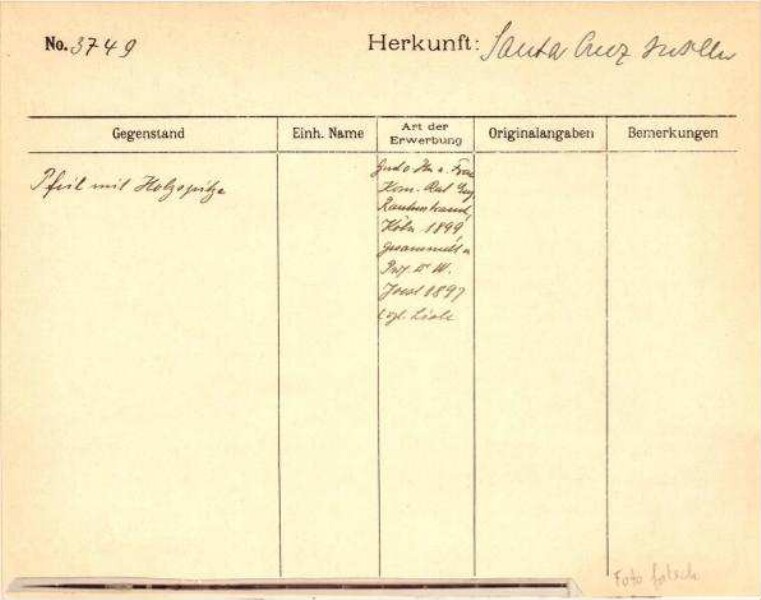 No. 3749
Herkunft: Santa Cruz Inseln
Gegenstand
Einh. Name
Art der Erwerbung
Originalangaben
Bemerkungen
Pfeil mit Holzspitze
Frau
Kom. Rat Eug
Rautenstrauch,
Köln 1899,
gesammelt v.
Prof. Dr W.
Joest 1897
vgl. Liste
Foto falsch